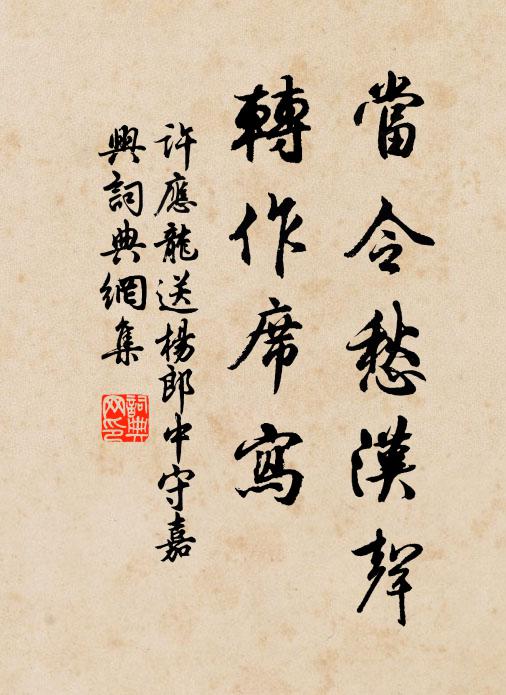 當令愁漢聲
轉作席寫
許應龍送楊郎中守嘉
興詞典網集
詞典
网印